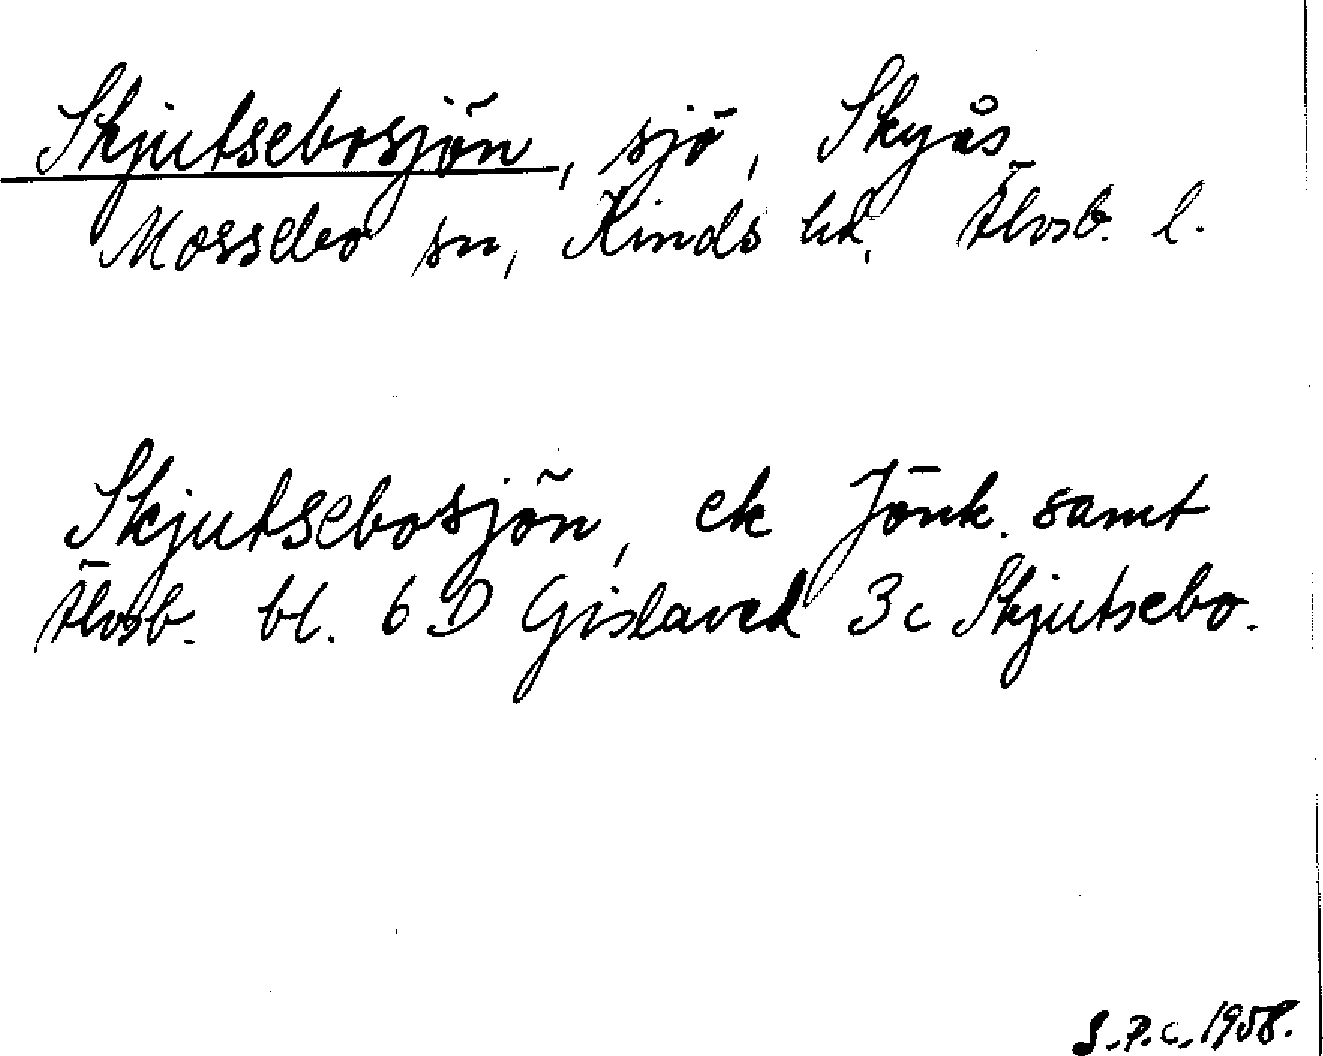 Skjutsebosjön, sjö, Skyås
Mossebo sn, Kinds hd, Älvsb. l.
Skjutsebosjön, ek Jönk. samt
Älvsb. bl. 6 D Gislaved 3c Skjutsebo.
S.P.C. 1958.